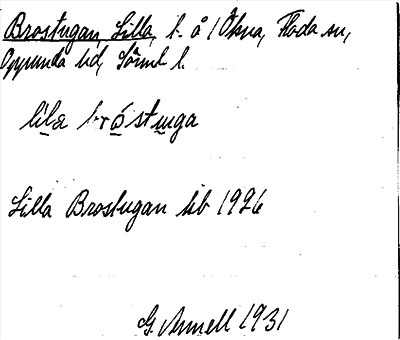 Brostugan, Lilla, l. å 1 Öksna, Floda sn,
Oppunda hd, Söml l.
lila bróstuga
Lilla Brostugan hb 1926
G. Annell 1931